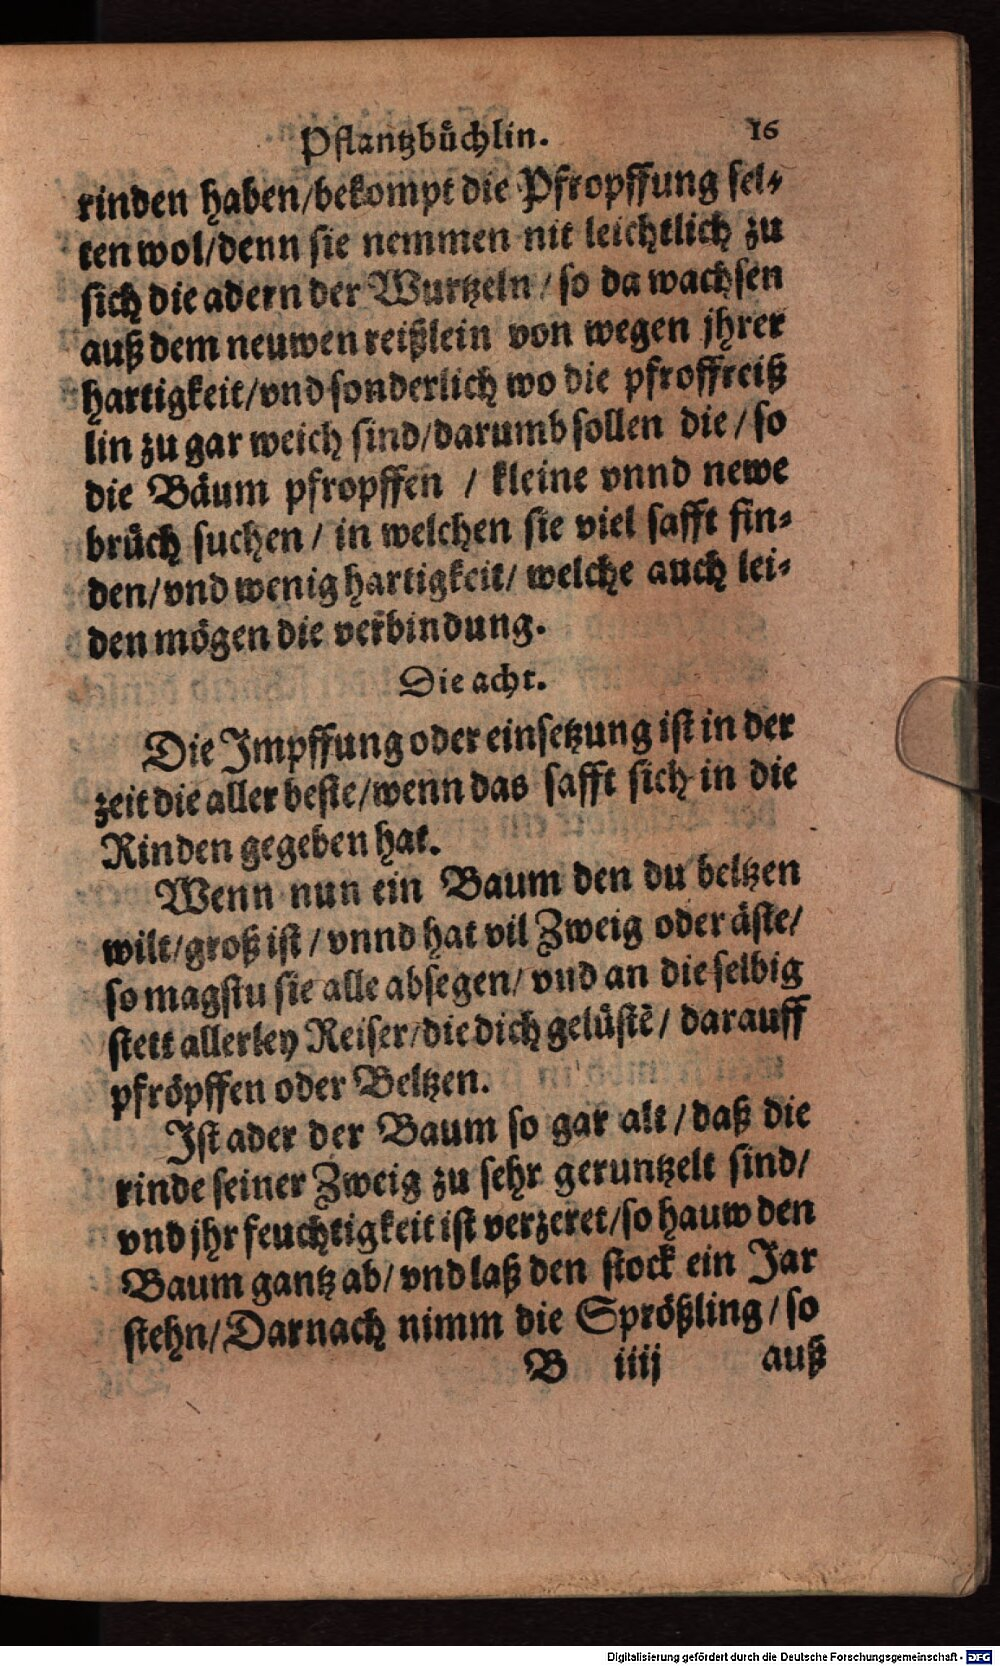 Pflantzbůchlin. 16
rinden haben/bekompt die Pfropffung sel-
ten wol/denn sie nemmen nit leichtlich zu
sich die adern der Wurtzeln/so da wachsen
auß dem neuwen reißlein von wegen jhrer
hartigkeit/vnd sonderlich wo die pfroffreiß
lin zu gar weich sind/darumb sollen die/so
die Bäum pfropffen / kleine vnnd newe
brůch suchen/ in welchen sie viel safft fin-
den/vnd wenig hartigkeit/ welche auch lei-
den mögen die verbindung.
Die acht.
Die Impffung oder einsetzung ist in der
zeit die aller beste/wenn das safft sich in die
Rinden gegeben hat.
Wenn nun ein Baum den du beltzen
wilt/groß ist/vnnd hat vil Zweig oder äste/
so magstu sie alle absegen/ vnd an die selbig
stett allerley Reiser/die dich gelüstē/ darauff
pfröpffen oder Beltzen.
Ist ader der Baum so gar alt/daß die
rinde seiner Zweig zu sehr geruntzelt sind/
vnd jhr feuchtigkeit ist verzeret/so hauw den
Baum gantz ab/ vnd laß den stock ein Jar
stehn/Darnach nimm die Sprößling/so
B iiij auß
Digitalisierung gefördert durch die Deutsche Forschungsgemeinschaft - DFG